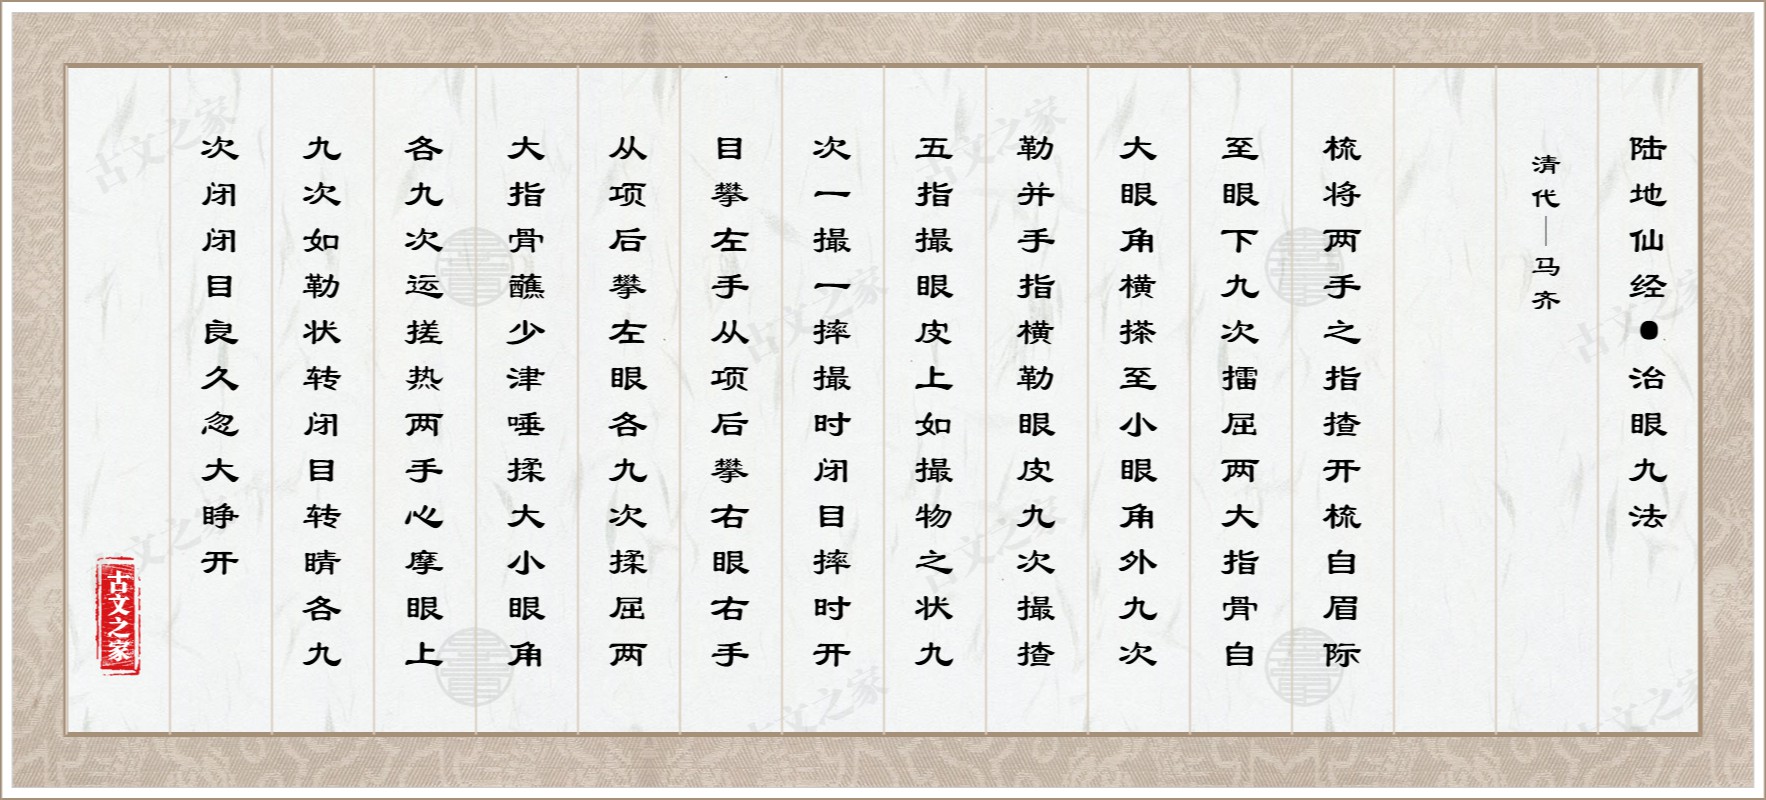 陆地仙经●治眼九法
清代—马齐
梳将两手之指揸开梳自眉际
至眼下九次擂屈两大指骨自
大眼角横搽至小眼角外九次
勒并手指横勒眼皮九次撮揸
五指撮眼皮上如撮物之状九
次一撮一摔撮时闭目摔时开
目攀左手从项后攀右眼右手
从项后攀左眼各九次揉屈两
大指骨蘸少津唾揉大小眼角
各九次运搓热两手心摩眼上
九次如勒状转闭目转睛各九
次闭闭目良久忽大睁开
古文之家